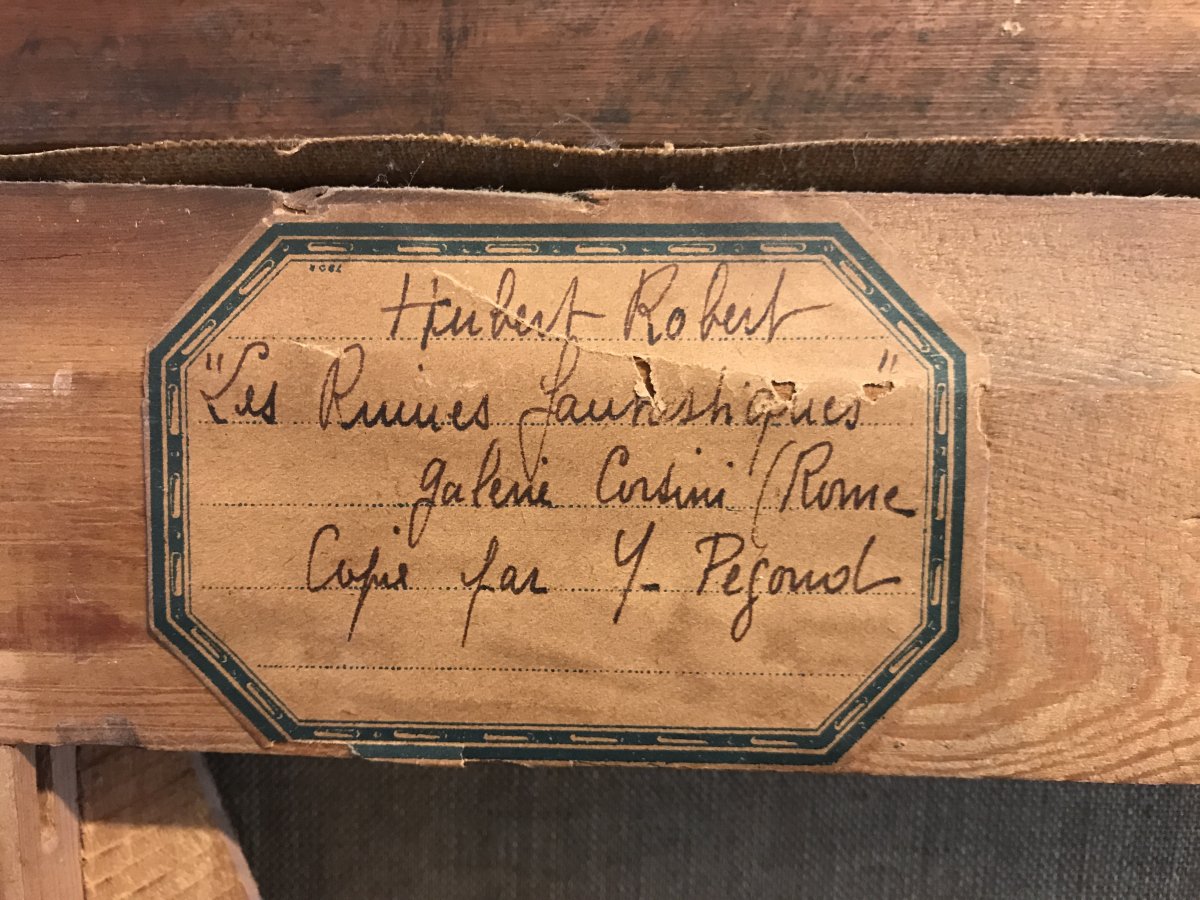 Hubert Robert
"Les Ruines fantastiques"
galerie Corsini / Rome
Copie par Y- Pégond